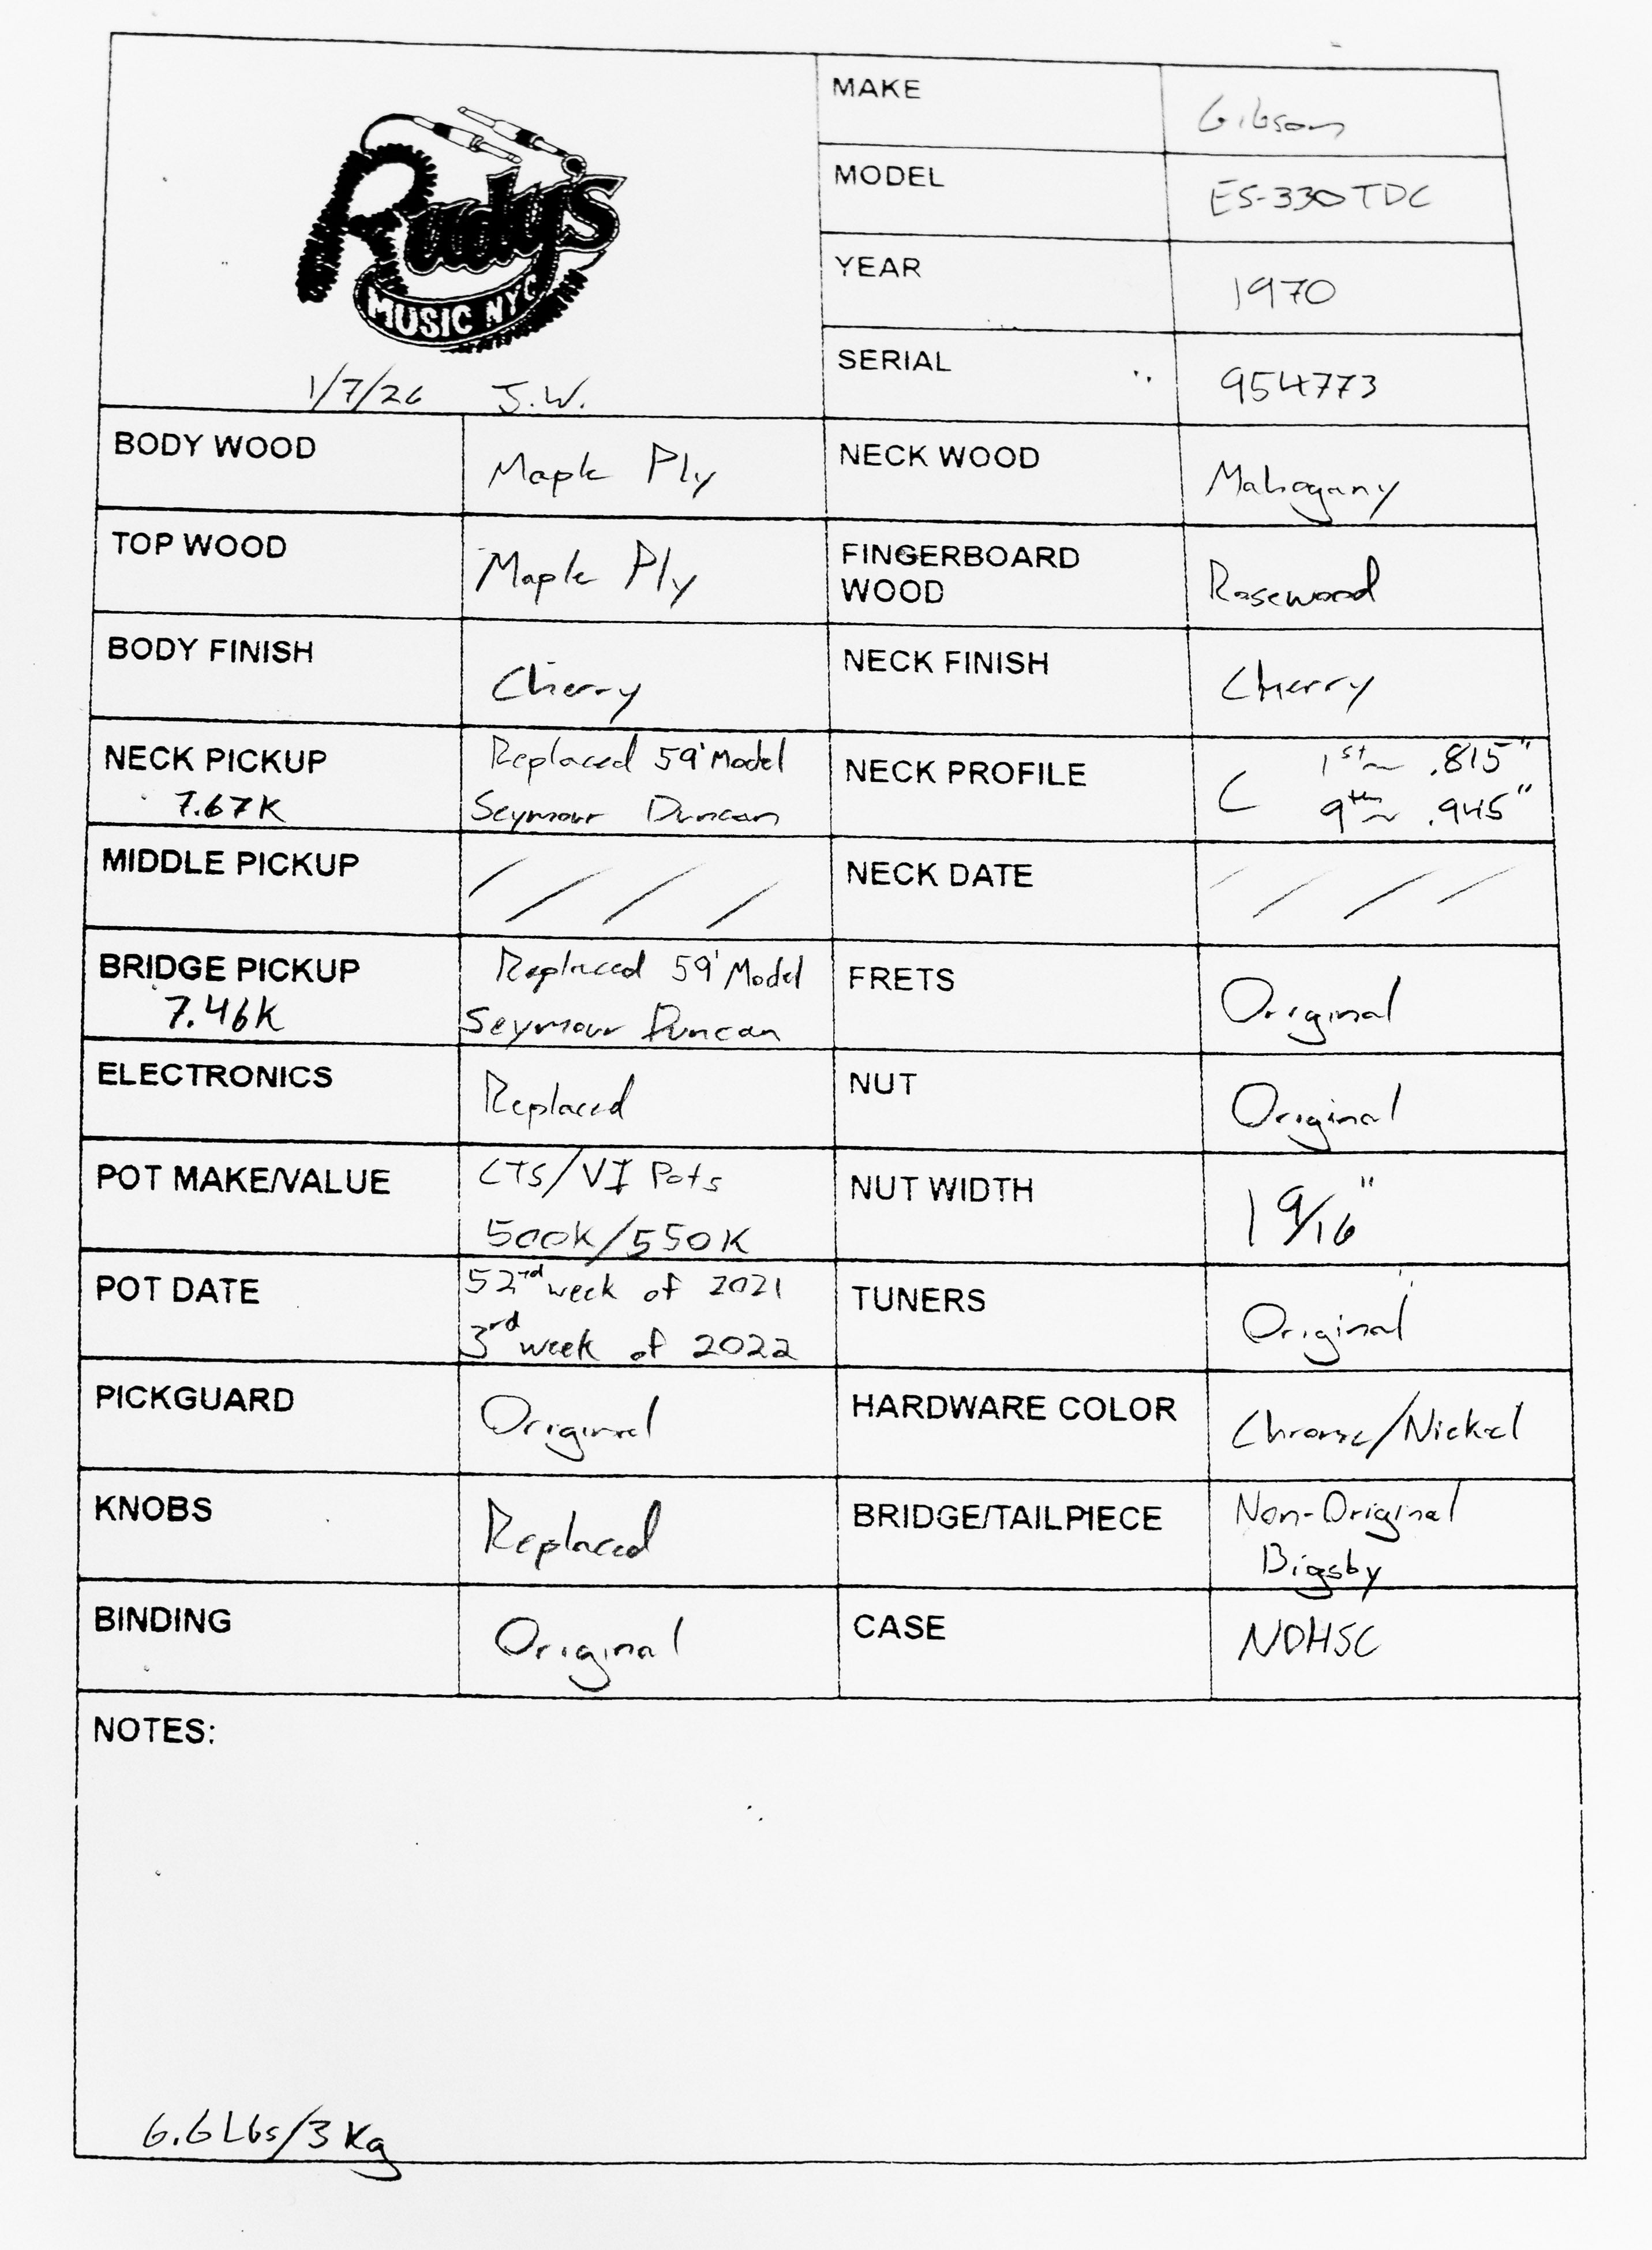 Rudy's
MUSIC NYC
1/7/26 J.W.
MAKE Gibson
MODEL ES-330TDC
YEAR 1970
SERIAL 954773
BODY WOOD Maple Ply
NECK WOOD Mahogany
TOP WOOD Maple Ply
FINGERBOARD
WOOD Rosewood
BODY FINISH Cherry
NECK FINISH Cherry
NECK PICKUP Replaced 59' Model
7.67K Seymour Duncan
NECK PROFILE C 1st ~ .815"
9th ~ .945"
MIDDLE PICKUP / / / /
NECK DATE / / / /
BRIDGE PICKUP Replaced 59' Model
7.46K Seymour Duncan
FRETS Original
ELECTRONICS Replaced
NUT Original
POT MAKE/VALUE CTS/VI Pots
500K/550K
NUT WIDTH 1 9/16"
POT DATE 52nd week of 2021
3rd week of 2022
TUNERS Original
PICKGUARD Original
HARDWARE COLOR Chrome/Nickel
KNOBS Replaced
BRIDGE/TAILPIECE Non-Original
Bigsby
BINDING Original
CASE NOHSC
NOTES:
6.6 Lbs/3 Kg